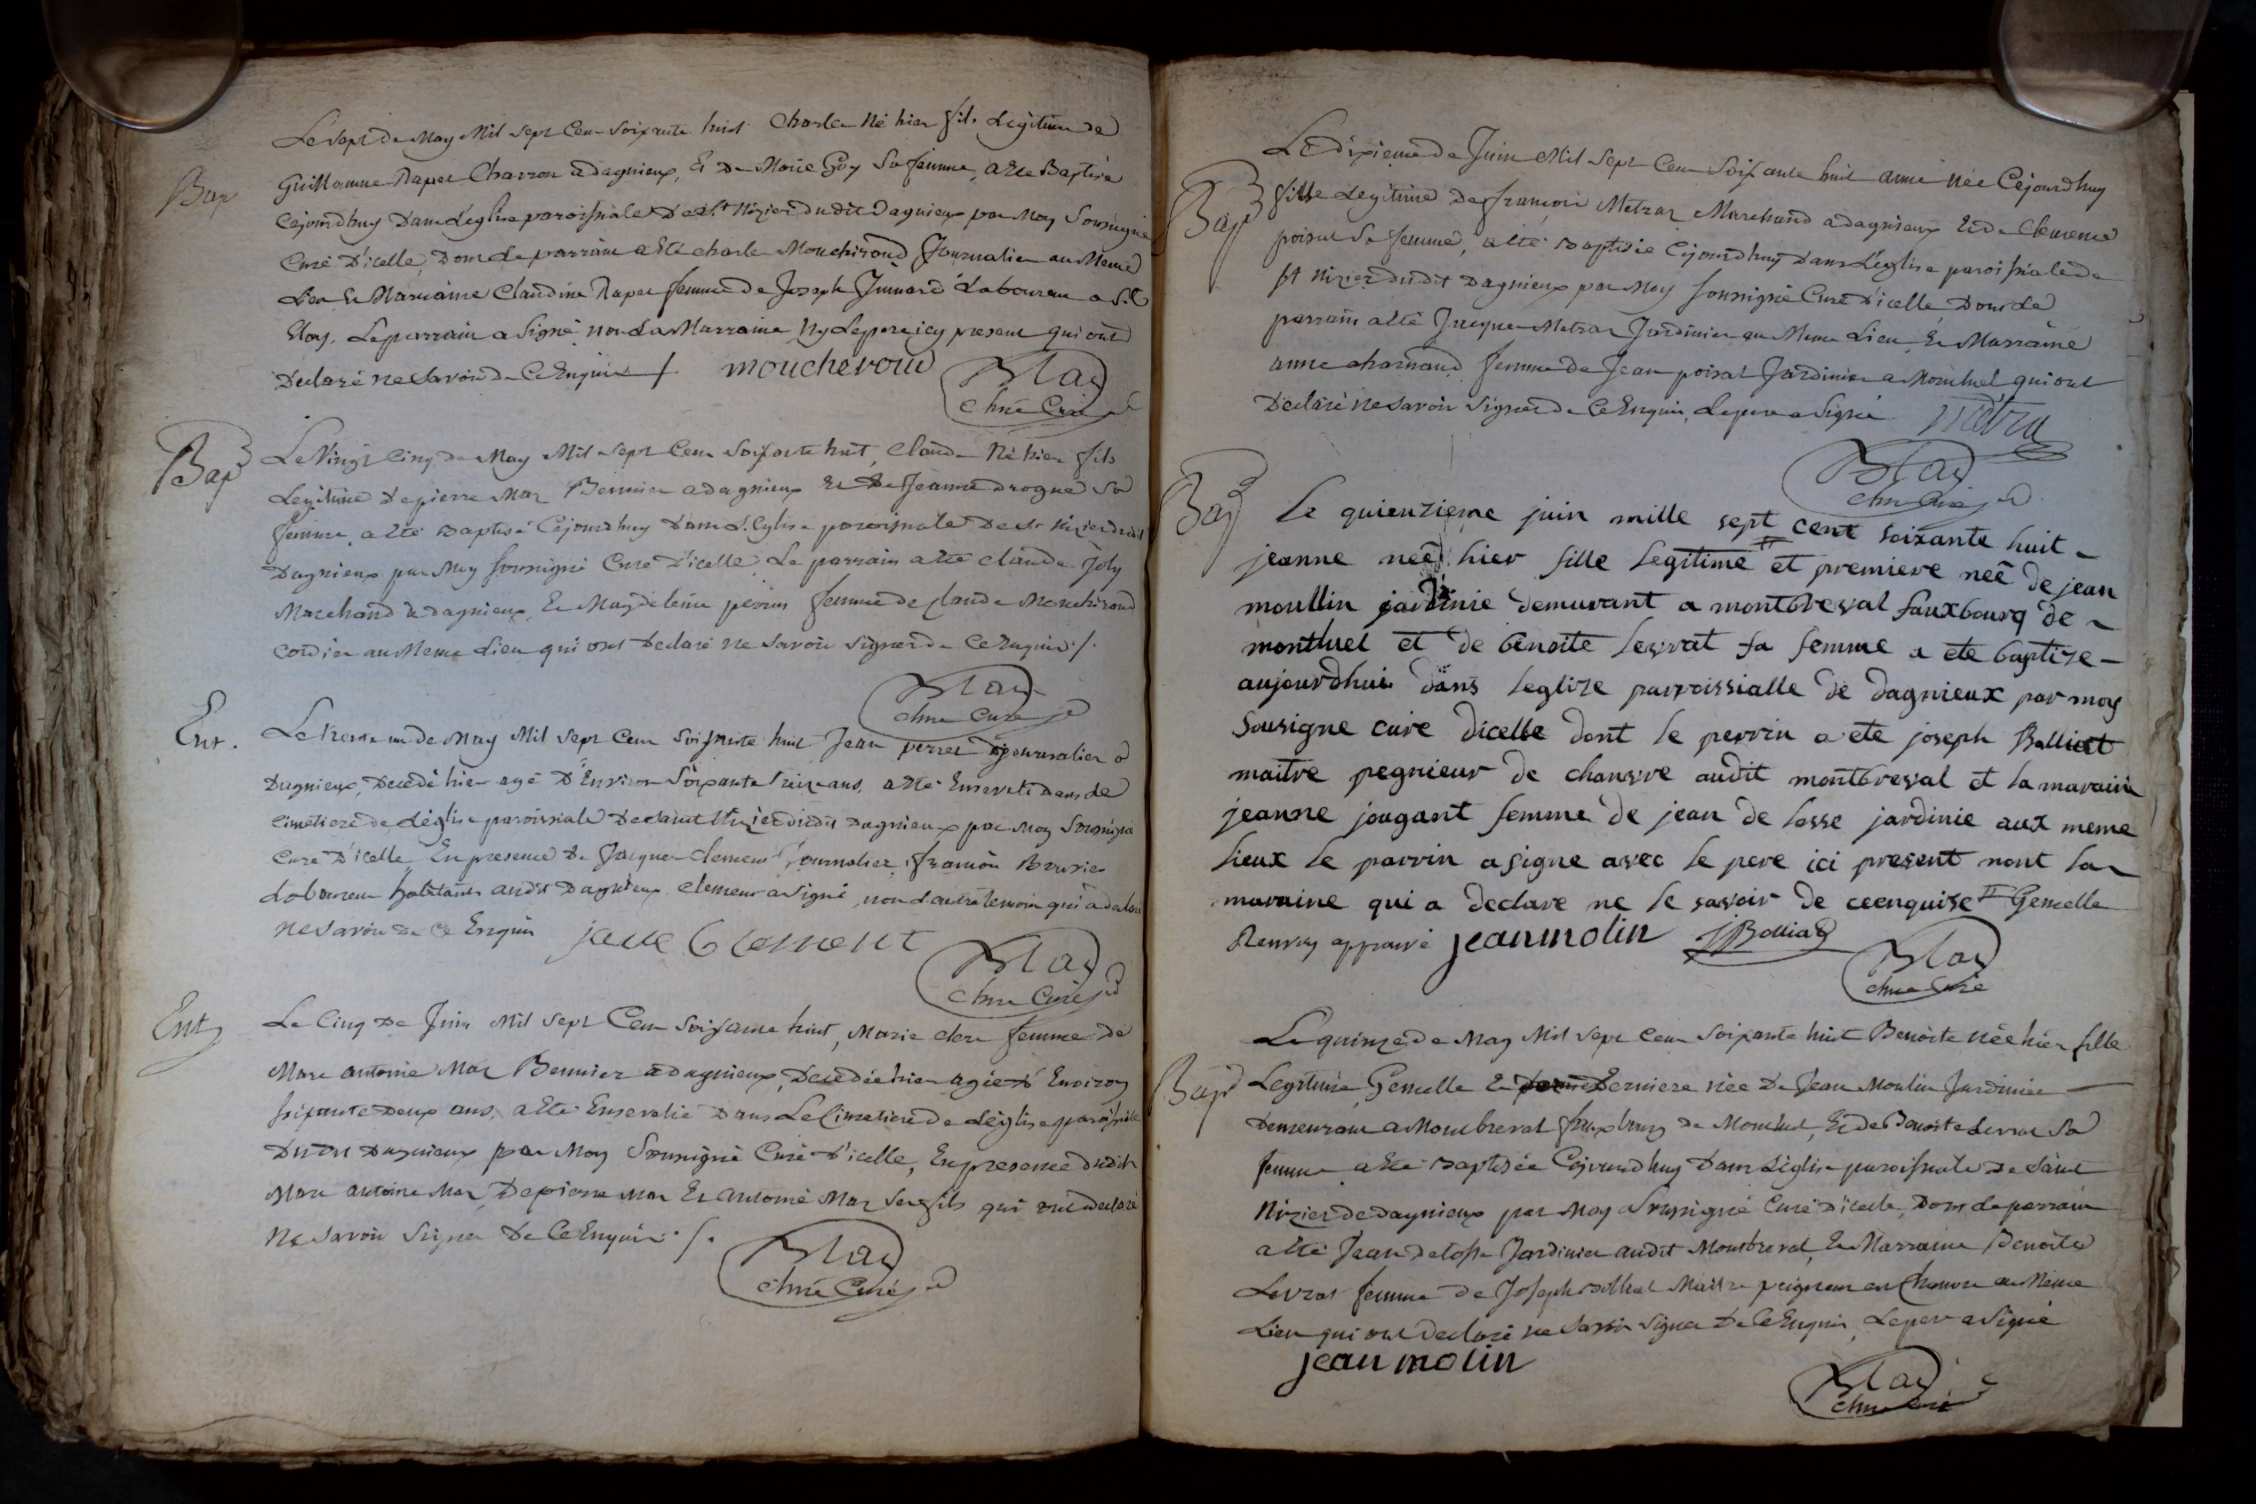 Bap
Le sept de May Mil sept Cent soixante huit Charle Né hier fils Legitime de
Guillaume Rapet Charron a dagnieux, Et De Marie Goy Sa femme, a Eté Baptisé
Cejourdhuy Dans L'eglise paroissiale De St Nizier du dit Dagnieux par Moy Soussigné
Curé D'icelle, Dont Le parrain a Eté charle Moucheroud Journalier au Meme
Lieu Et Marraine Claudine Rapet femme de Joseph Laboureur a St
Eloy. Le parrain a Signé non La Marraine Ny Le pere icy present qui ont
Declaré ne savoir de Ce Enquis /.
moucheroud
Blad
Curé
Bap
Le Vingt Cinq de May Mil sept Cent soixante huit, Claude Né hier fils
Legitime De pierre Mar Bennier a dagnieux Et De Jeanne drogue Sa
femme, a Eté Baptisé Cejourdhuy Dans L'Eglise paroissiale De St Nizier dudit
Dagnieux par Moy soussigné Curé D'icelle, Le parrain a Eté Claude Joly
Marchand a dagnieux, Et Magdeleine perrin femme de Claude Moucheroud
Cordier au Meme Lieu qui ont Declaré ne savoir signer de Ce Enquis /.
Blad
Curé
Ent.
Le trente un de May Mil sept Cent soixante huit Jean perret journalier a
Dagnieux, Decedé hier agé D'Environ Soixante treize ans, a Eté Enseveli dans Le
Cimetiere de L'eglise paroissiale De saint Nizier dudit Dagnieux par Moy Soussigné
Curé D'icelle, En presence De Jacque clement Journalier, françois
Laboureur habitants audit Dagnieux. clement a signé, non L'autre temoin qui a declaré
ne savoir de Ce Enquis
jaque Clemont
Blad
Curé
Ent
Le Cinq De Juin Mil sept Cent soixante huit, Marie clere femme De
Marc antoine Mar Bennier a dagnieux, Decedée hier agée D'Environ
soixante Deux ans, a Eté Ensevelie Dans Le Cimetiere de L'eglise paroissiale
Dudit Dagnieux par Moy Soussigné Curé D'icelle, En presence dudit
Marc antoine Mar, De pierre Mar Et antoine Mar Ses fils qui ont declaré
Ne savoir Signer De Ce Enquis /.
Blad
Curé
Bap
Le dixieme de Juin Mil sept Cent soixante huit anne née Cejourdhuy
fille Legitime de françois Metrat Marchand a dagnieux Et de Clemence
poisat Sa femme, a Eté Baptisée Cejourdhuy Dans L'eglise paroissiale de
St Nizier dudit Dagnieux par Moy soussigné Curé D'icelle, Dont Le
parrain a Eté Jacque Metrat Jardinier au Meme Lieu, Et Marraine
anne charnaud femme de Jean poisat Jardinier a Montluel qui ont
Declaré ne savoir signer de Ce Enquis, Le pere a Signé
Metra
Blad
Curé
Bap
le quienzieme juin mille sept cent soixante huit
jeanne neê hier fille legitime et premiere neê de jean
moullin jardinie demurant a montbreval fauxbourg de
montluel et de benoite levrat sa femme a ete baptize
aujourdhui dans leglize parroissialle de dagnieux par moy
sousigne cure dicelle dont le perrin a ete joseph Balliat
maitre pegnieur de chanvre audit montbreval et la maraine
jeanne jougant femme de jean de losse jardinie aux meme
lieux le parrin a signe avec le pere ici present nont la
maraine qui a declare ne le savoir de ceenquise Gemelle
Renvoy approuvé
jeanmolin
JBolliad
Blad
Curé
Bap
Le quinze de May Mil sept Cent soixante huit Benoite née hier fille
Legitime, Gemelle Et Derniere née De Jean Moulin Jardinier
Demeurant a Montbreval fauxbourg de Montluel, Et de Benoite Levrat Sa
femme a Eté Baptisée Cejourdhuy Dans L'eglise paroissiale De saint
Nizier de Dagnieux par Moy Soussigné Curé D'icelle, Dont Le parrain
a Eté Jean Delosse Jardinier audit Montbreval, Et Marraine Benoite
Levrat femme de Joseph Bolliat Maitre peigneur en Chanvre au Meme
Lieu qui ont declaré ne savoir signer De Ce Enquis, Le pere a signé
jeau molin
Blad
Curé